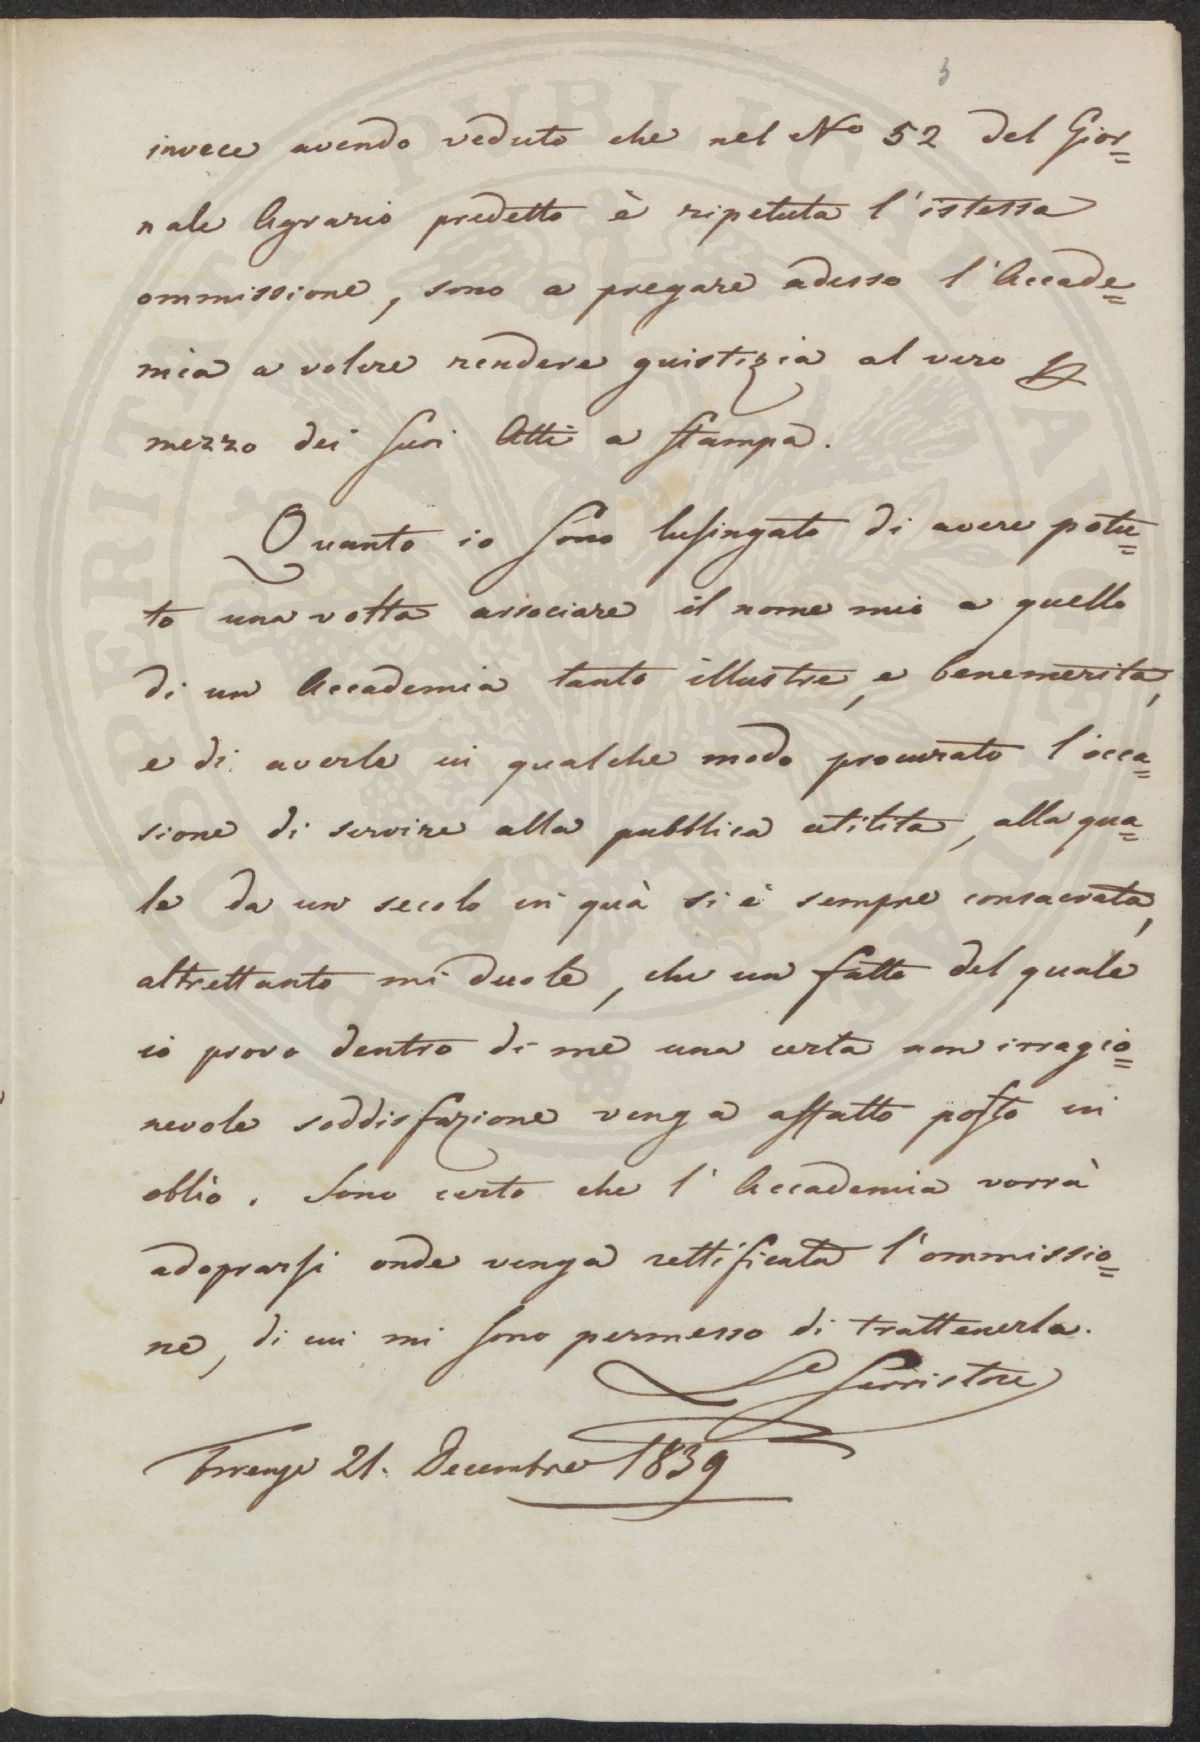 3
invece avendo veduto che nel No 52 del Gior=
nale Agrario predetto è ripetuta l'istessa
ommissione, sono a pregare adesso l'Accade=
mia a volere rendere giustizia al vero p
mezzo dei suoi Atti a stampa.
Quanto io sono lusingato di avere potu=
to una volta associare il nome mio a quello
di un Accademia tanto illustre, e benemerita,
e di averle in qualche modo procurato l'occa=
sione di servire alla pubblica utilita, alla qua=
le da un secolo in quà si è sempre consacrata,
altrettanto mi duole, che un fatto del quale
io provo dentro di me una certa non irragio=
nevole soddisfazione venga affatto posto in
oblìo. Sono certo che l'Accademia vorrà
adoprarsi onde venga rettificata l'ommissio=
ne, di cui mi sono permesso di trattenerla.
Serristori
Firenze 21. Decembre 1839
PUBLICAE
PROSPERITATI